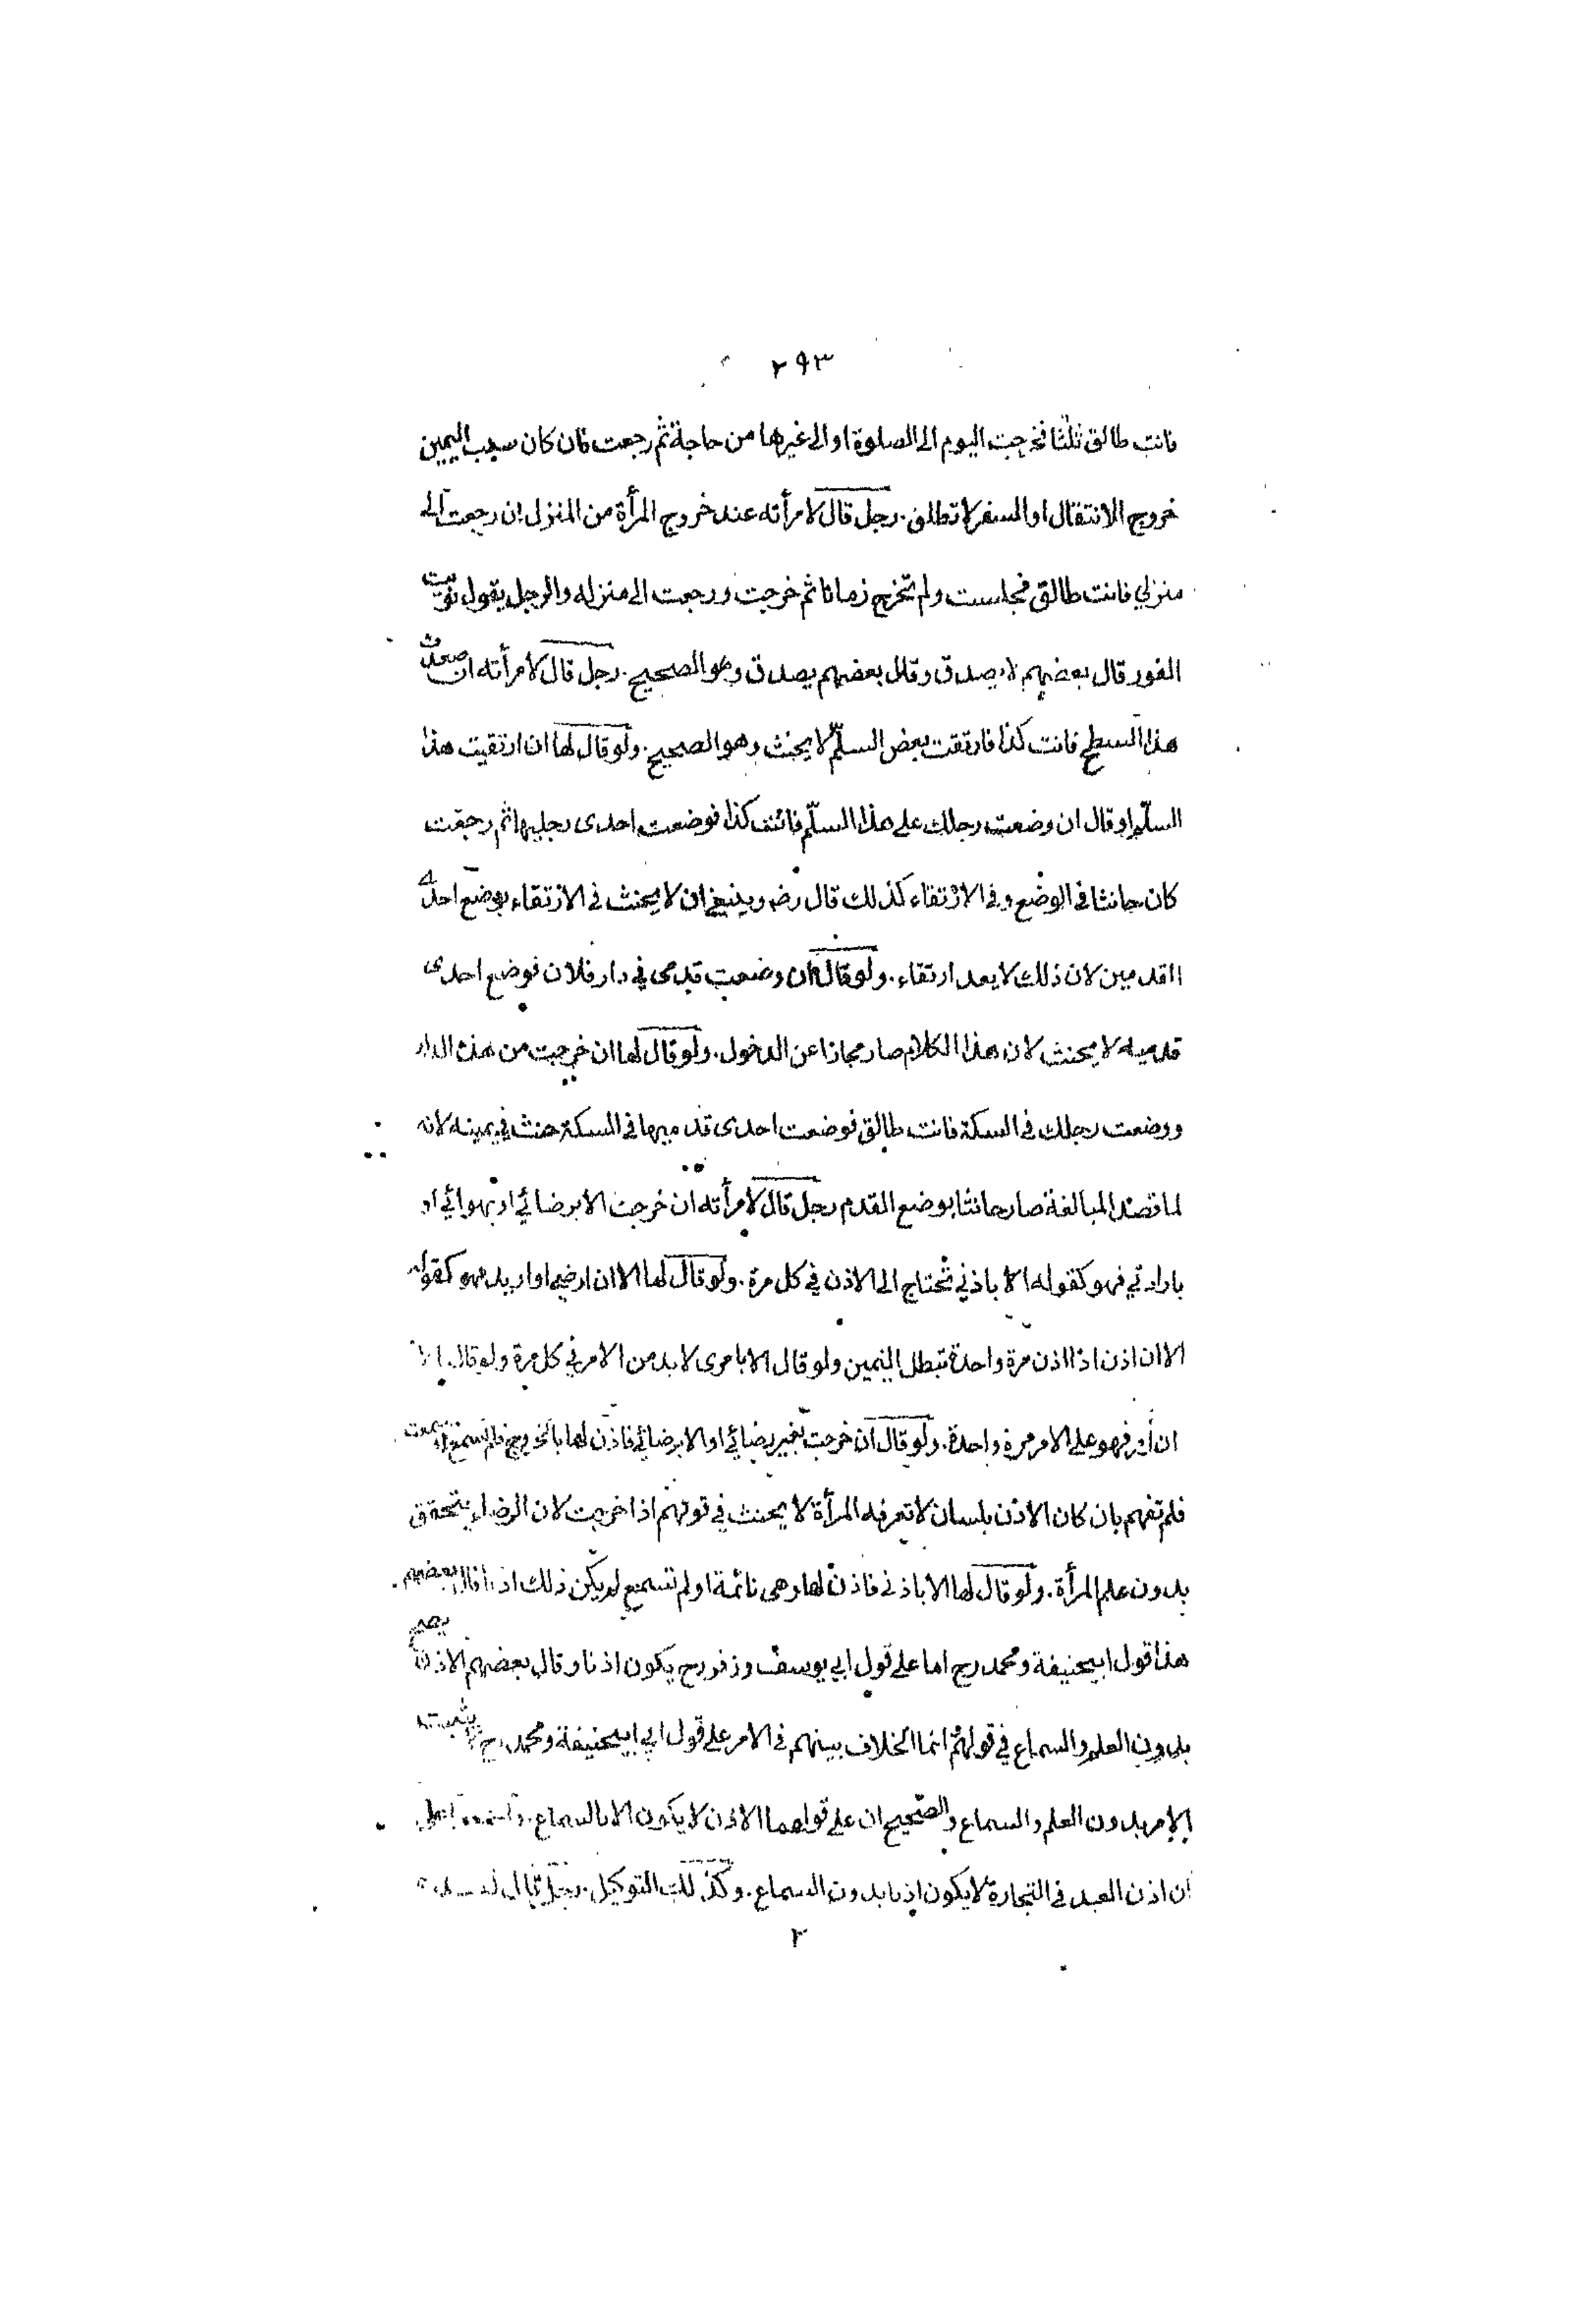 ٢٩٣
فانت طالق ثلثا فخرجت اليوم الى الصلوة او الى غيرها من حاجة ثم رجعت فان كان سبب اليمين
خروج الانتقال او السفر لا تطلق . رجل قال لامرأته عند خروج المرأة من المنزل ان رجعت الى
منزلي فانت طالق فجلست ولم تخرج زمانا ثم خرجت ورجعت الى منزله والرجل يقول نويت
الفور قال بعضهم لا يصدق وقال بعضهم يصدق وهو الصحيح . رجل قال لامرأته ان صعدت
هذا السطح فانت كذا فارتقت بعض السلّم لا يحنث وهو الصحيح . ولو قال لها ان ارتقيت هذا
السلّم او قال ان وضعت رجلك على هذا السلّم فانت كذا فوضعت احدى رجليها ثم رجعت
كان حانثا في الوضع وفي الارتقاء كذلك قال رضه وينبغي ان لا يحنث في الارتقاء بوضع احدى
القدمين لان ذلك لا يعد ارتقاء . ولو قال ان وضعت قدمى في دار فلان فوضع احدى
قدميه لا يحنث لان هذا الكلام صار مجازا عن الدخول . ولو قال لها ان خرجت من هذه الدار
ووضعت رجلك في السكة فانت طالق فوضعت احدى قدميها في السكة حنث في يمينه لانه
لما قصد المبالغة صار حانثا بوضع القدم رجل قال لامرأته ان خرجت الا برضائي او بهوائي او
بارادتي فهو كقوله الا باذني تحتاج الى الاذن في كل مرة . ولو قال لها الا ان ارضى او اريد فهو كقوله
الا ان اذن اذا اذن مرة واحدة تبطل اليمين ولو قال الا بامرى لا بد من الامر في كل مرة ولو قال الا
ان آمر فهو على الامر مرة واحدة . ولو قال ان خرجت بغير رضائي او الا برضائي فاذن لها بالخروج فلم تسمع او سمعت
فلم تفهم بان كان الاذن بلسان لا تعرفه المرأة لا يحنث في قولهم اذا خرجت لان الرضاء يتحقق
بدون علم المرأة . ولو قال لها الا باذني فاذن لها وهى نائمة او لم تسمع لم يكن ذلك اذنا قال بعضهم
هذا قول ابيحنيفة ومحمد رح اما على قول ابي يوسف وزفر رح يكون اذنا وقال بعضهم الاذن يصح
بدون العلم والسماع في قولهم انما الخلاف بينهم في الامر على قول ابي ابيحنيفة ومحمد رح يثبت
الامر بدون العلم والسماع والصحيح ان على قولهما الاذن لا يكون الا بالسماع .
ان اذن العبد في التجارة لا يكون اذنا بدون السماع . وكذلك التوكيل . رجل قال
٢